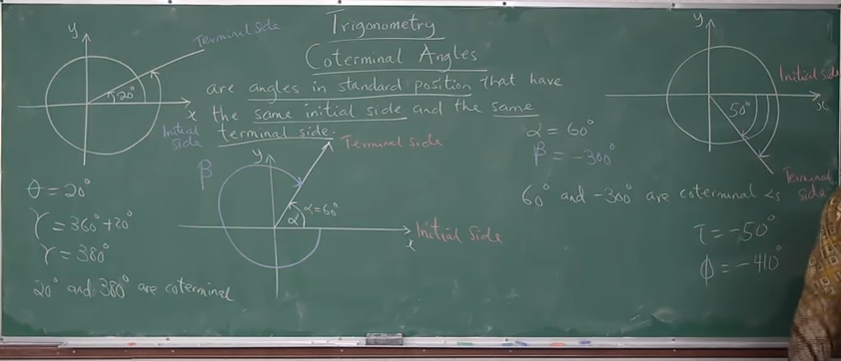 Trigonometry
Coterminal Angles
are angles in standard position that have
the same initial side and the same
terminal side.
y
Terminal Side
20°
x
Initial
side
θ = 20°
γ = 360° + 20°
γ = 380°
20° and 380° are coterminal
β
y
Terminal side
α
α = 60°
x
Initial Side
α = 60°
β = -300°
60° and -300° are coterminal ∠s
y
Initial side
x
50°
Terminal
side
τ = -50°
ϕ = -410°